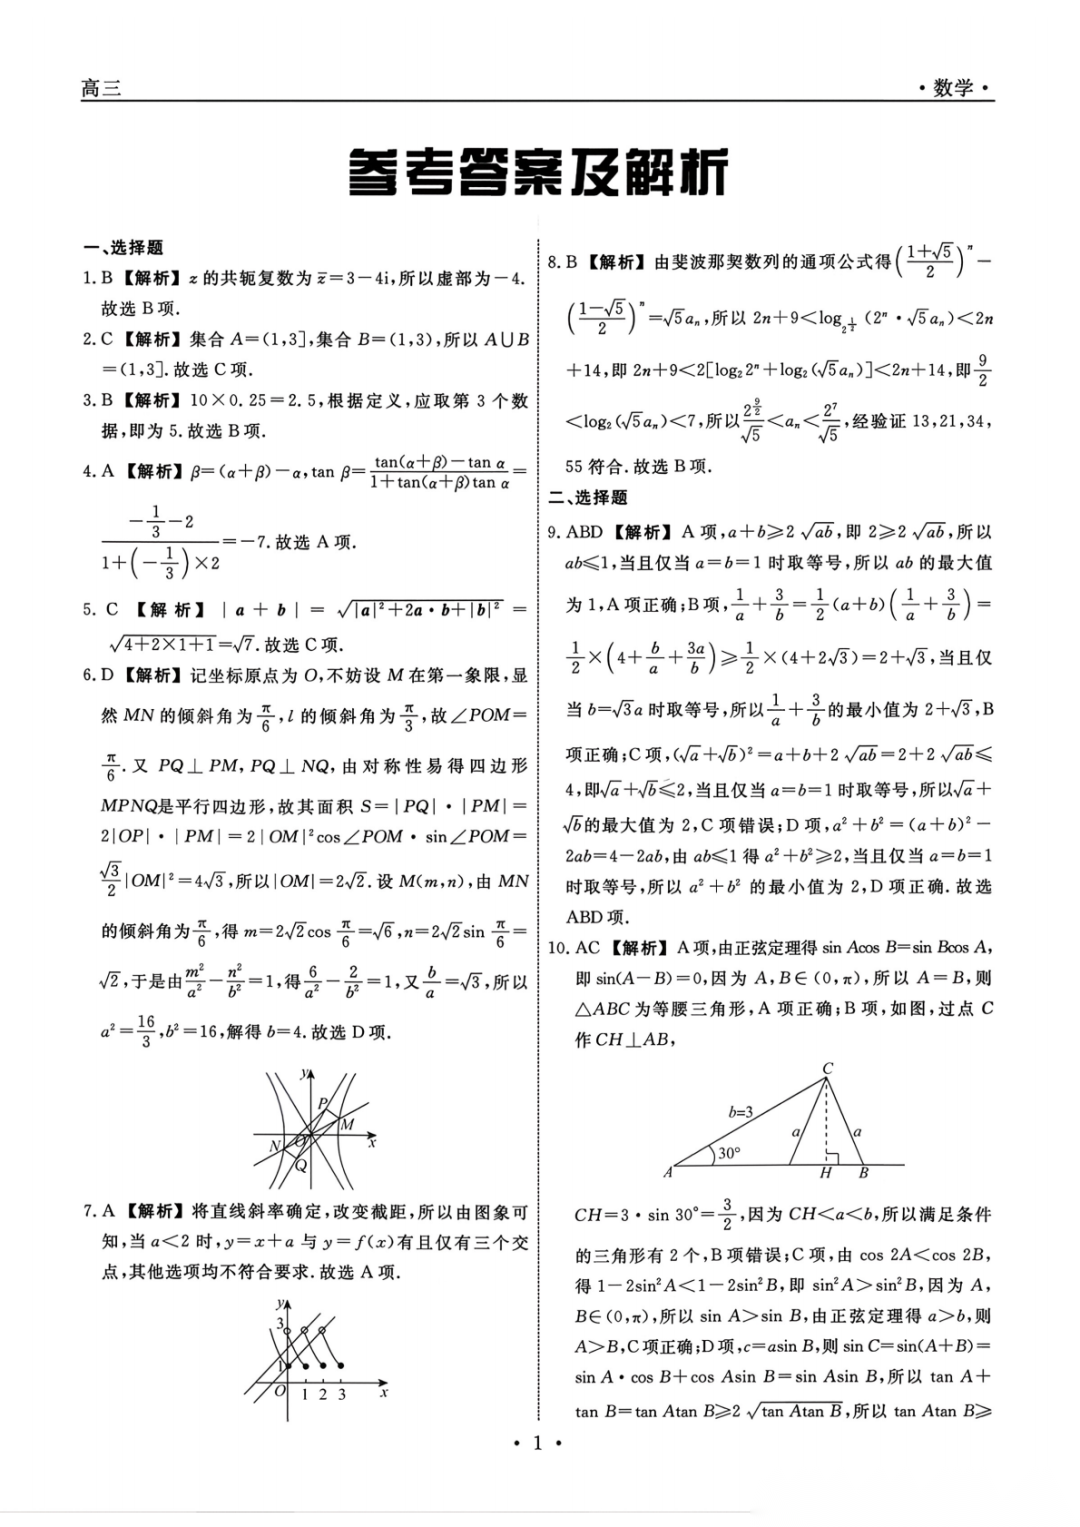 高三
·数学·
参考答案及解析
一、选择题
1. B 【解析】z 的共轭复数为 z̄=3-4i,所以虚部为-4.
故选 B 项.
2. C 【解析】集合 A=(1,3],集合 B=(1,3),所以 A∪B
=(1,3]. 故选 C 项.
3. B 【解析】10×0.25=2.5,根据定义,应取第 3 个数
据,即为 5. 故选 B 项.
4. A 【解析】β=(α+β)-α,tan β=(tan(α+β)-tan α)/(1+tan(α+β)tan α)=
(-1/3-2)/(1+(-1/3)×2)=-7. 故选 A 项.
5. C 【解析】|a+b|=√(|a|²+2a·b+|b|²)=
√(4+2×1+1)=√7. 故选 C 项.
6. D 【解析】记坐标原点为 O,不妨设 M 在第一象限,显
然 MN 的倾斜角为 π/6,l 的倾斜角为 π/3,故∠POM=
π/6. 又 PQ⊥PM,PQ⊥NQ,由对称性易得四边形
MPNQ是平行四边形,故其面积 S=|PQ|·|PM|=
2|OP|·|PM|=2|OM|²cos∠POM·sin∠POM=
√3/2|OM|²=4√3,所以|OM|=2√2. 设 M(m,n),由 MN
的倾斜角为 π/6,得 m=2√2cos π/6=√6,n=2√2sin π/6=
√2,于是由 m²/a²-n²/b²=1,得 6/a²-2/b²=1,又 b/a=√3,所以
a²=16/3,b²=16,解得 b=4. 故选 D 项.
y
P
M
N
O
x
Q
7. A 【解析】将直线斜率确定,改变截距,所以由图象可
知,当 a<2 时,y=x+a 与 y=f(x)有且仅有三个交
点,其他选项均不符合要求. 故选 A 项.
y
3
1
O 1 2 3 x
8. B 【解析】由斐波那契数列的通项公式得((1+√5)/2)ⁿ-
((1-√5)/2)ⁿ=√5aₙ,所以 2n+9<log_{2^{1/2}}(2ⁿ·√5aₙ)<2n
+14,即 2n+9<2[log₂2ⁿ+log₂(√5aₙ)]<2n+14,即 9/2
<log₂(√5aₙ)<7,所以 2^{9/2}/√5<aₙ<2⁷/√5,经验证 13,21,34,
55 符合. 故选 B 项.
二、选择题
9. ABD 【解析】A 项,a+b≥2√ab,即 2≥2√ab,所以
ab≤1,当且仅当 a=b=1 时取等号,所以 ab 的最大值
为 1,A 项正确;B项,1/a+3/b=1/2(a+b)(1/a+3/b)=
1/2×(4+b/a+3a/b)≥1/2×(4+2√3)=2+√3,当且仅
当 b=√3a 时取等号,所以 1/a+3/b 的最小值为 2+√3,B
项正确;C 项,(√a+√b)²=a+b+2√ab=2+2√ab≤
4,即√a+√b≤2,当且仅当 a=b=1 时取等号,所以√a+
√b的最大值为 2,C 项错误;D 项,a²+b²=(a+b)²-
2ab=4-2ab,由 ab≤1 得 a²+b²≥2,当且仅当 a=b=1
时取等号,所以 a²+b² 的最小值为 2,D 项正确. 故选
ABD 项.
10. AC 【解析】A 项,由正弦定理得 sin Acos B=sin Bcos A,
即 sin(A-B)=0,因为 A,B∈(0,π),所以 A=B,则
△ABC 为等腰三角形,A 项正确;B 项,如图,过点 C
作 CH⊥AB,
C
b=3
a
a
30°
A
H B
CH=3·sin 30°=3/2,因为 CH<a<b,所以满足条件
的三角形有 2 个,B 项错误;C 项,由 cos 2A<cos 2B,
得 1-2sin²A<1-2sin²B,即 sin²A>sin²B,因为 A,
B∈(0,π),所以 sin A>sin B,由正弦定理得 a>b,则
A>B,C 项正确;D 项,c=asin B,则 sin C=sin(A+B)=
sin A·cos B+cos Asin B=sin Asin B,所以 tan A+
tan B=tan Atan B≥2√(tan Atan B),所以 tan Atan B≥
·1·